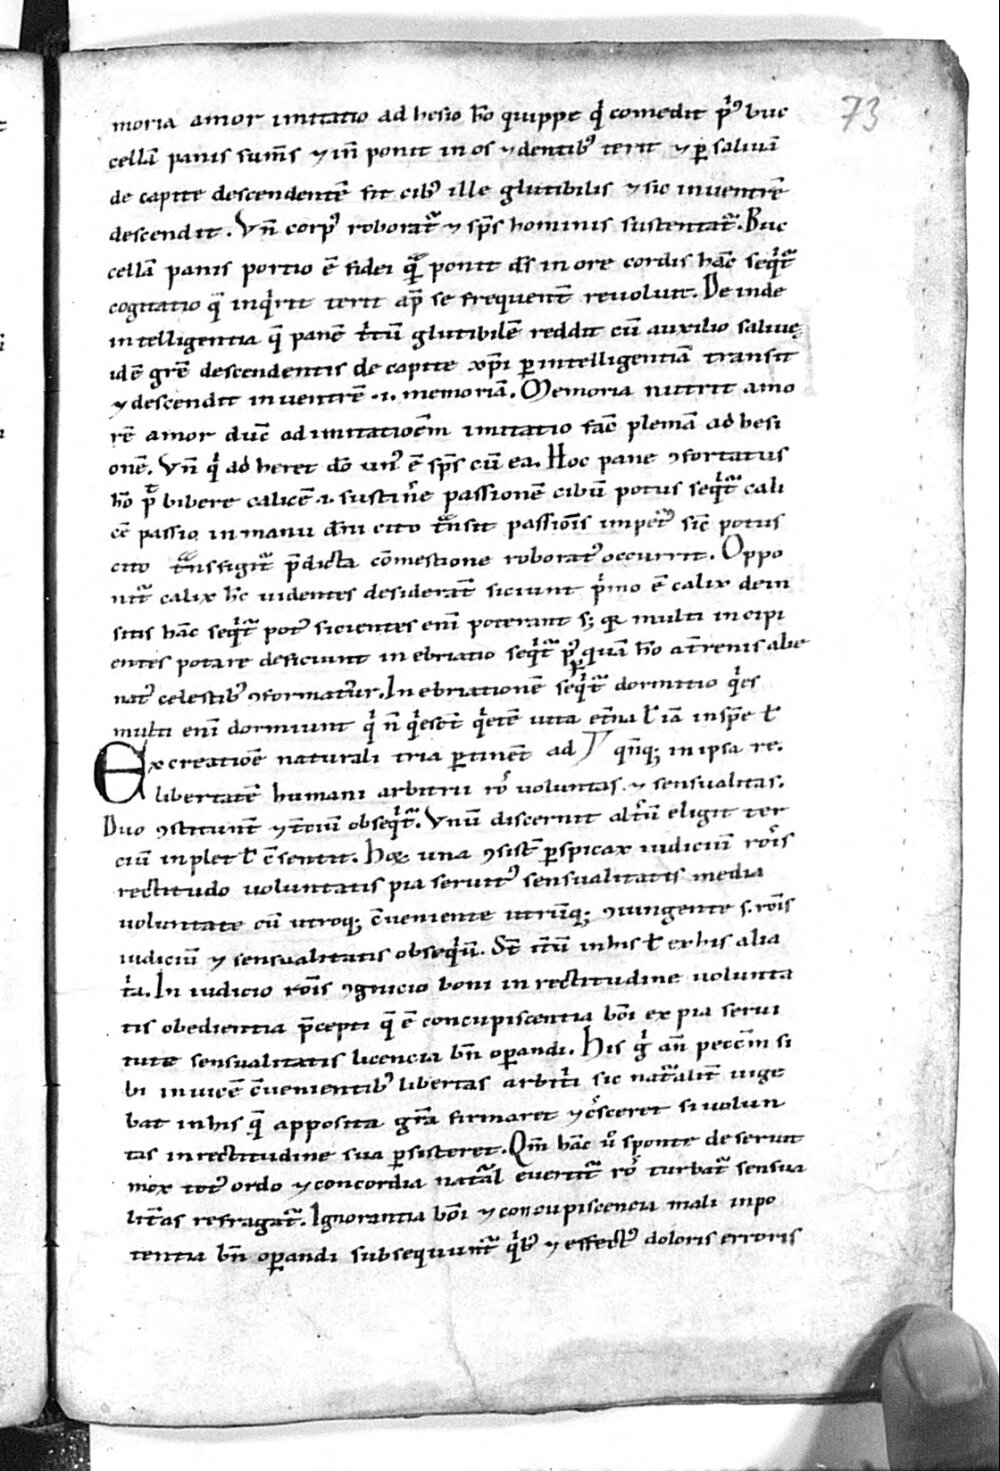 73
moria amor imitatio ad hesio ho̅ quippe qͥ comedit pͥꝰ buc
cella̅ panis sum̅s ⁊ in̅ ponit in os ⁊ dentibꝰ terit ⁊ ꝑ saliua̅
de capite descendente̅ fit cibꝰ ille glutibilis ⁊ sic in uentre̅
descendit. Vn̅ corpꝰ roborat᷑ ⁊ sp̅s hominis sustentat᷑. Buc
cella̅ panis portio e̅ fidei qua̅ ponit ds̅ in ore cordis hac̅ seqͥt᷑
cogitatio q̅ inqͥrit terit ap̅ se frequent̅ reuoluit. De inde
intelligentia q̅ pane̅ tͥtu̅ glutibile̅ reddit cu̅ auxilio saliuę
ide̅ gre̅ descendentis de capite xp̅i ꝑ intelligentia̅ transit
⁊ descendit in uentre̅ .i. memoria̅. Memoria nutrit amo
re̅ amor duc̅ ad imitatioe̅m imitatio fac̅ plema̅ ad hesi
one̅. Vn̅ qͥ ad heret do̅ unꝰ e̅ sp̅s cu̅ ea. Hoc pane ꝯfortatus
ho̅ p̅t bibere calice̅ .i. sustin̅e passione̅ cibu̅ potus seqͥt᷑ cali
ce̅ passio in manu dn̅i cito tn̅sit passiois̅ impetꝰ sic̅ potus
cito tn̅sfigit᷑ p̅dicta co̅mestione roboratꝰ occurrit. Oppo
nit᷑ calix hc̅ uidentes desiderat̅ siciunt pͥmo e̅ calix dein
sitis hac̅ seqͥt᷑ potꝰ sicientes eni̅ poterant sꝫ qꝛ multi incipi
entes potare deficiunt in ebriatio seqͥt᷑ pꝰ quam ho̅ at̅renis abe
natꝰ celestibꝰ ꝯformatur. In ebriatione̅ seqͥt᷑ dormitio qͥes
multi eni̅ dormiunt qͥ n̅ qͥesct̅ qͥete̅ uita et̅na ł ia̅ in spe̅ ł
Ex creatioe̅ naturali tria ꝑtinet̅ ad qn̅qꝫ in ipsa re.
libertate̅ humani arbitrii ro̅ uoluntas ⁊ sensualitas.
Duo ꝯstitunt̅ ⁊ tc̅iu̅ obseqͥt᷑. Vnu̅ discernit altͥu̅ eligit ter
ciu̅ inplet ł c̅sentit. Hoꝝ una ꝯsist̅ ꝑspicax iudiciu̅ ro̅is
rectitudo uoluntatis pia seruitꝰ sensualitatis media
uoluntate cu̅ utroqꝫ c̅ueniente utru̅qꝫ ꝯiungente s. ro̅is
iudiciu̅ ⁊ sensualitatis obseqͥu̅. St̅ it̅u̅ in his ł ex his alia
tͥa. In iudicio ro̅is ꝯgnicio boni in rectitudine uolunta
tis obedientia p̅cepti q̅ e̅ concupiscentia bo̅i ex pia serui
tute sensualitatis licencia bn̅ oꝑandi. His gͥ an̅ pecc̅m si
bi in uice̅ c̅uenientibꝰ libertas arbitͥi sic nat᷑alit̅ uige
bat in his q̅ apposita gr̅a firmaret ⁊ cͦsceret si uolun
tas in rectitudine sua ꝑsisteret. Qm̅ hac̅ uͦ sponte deseruit
mox totꝰ ordo ⁊ concordia nat᷑al euertit᷑ ro̅ turbat᷑ sensua
lit̅as refragat᷑. Ignorantia bo̅i ⁊ concupiscencia mali inpo
tentia bn̅ oꝑandi subsequunt᷑ qͥbꝰ ⁊ effectꝰ doloris erroris